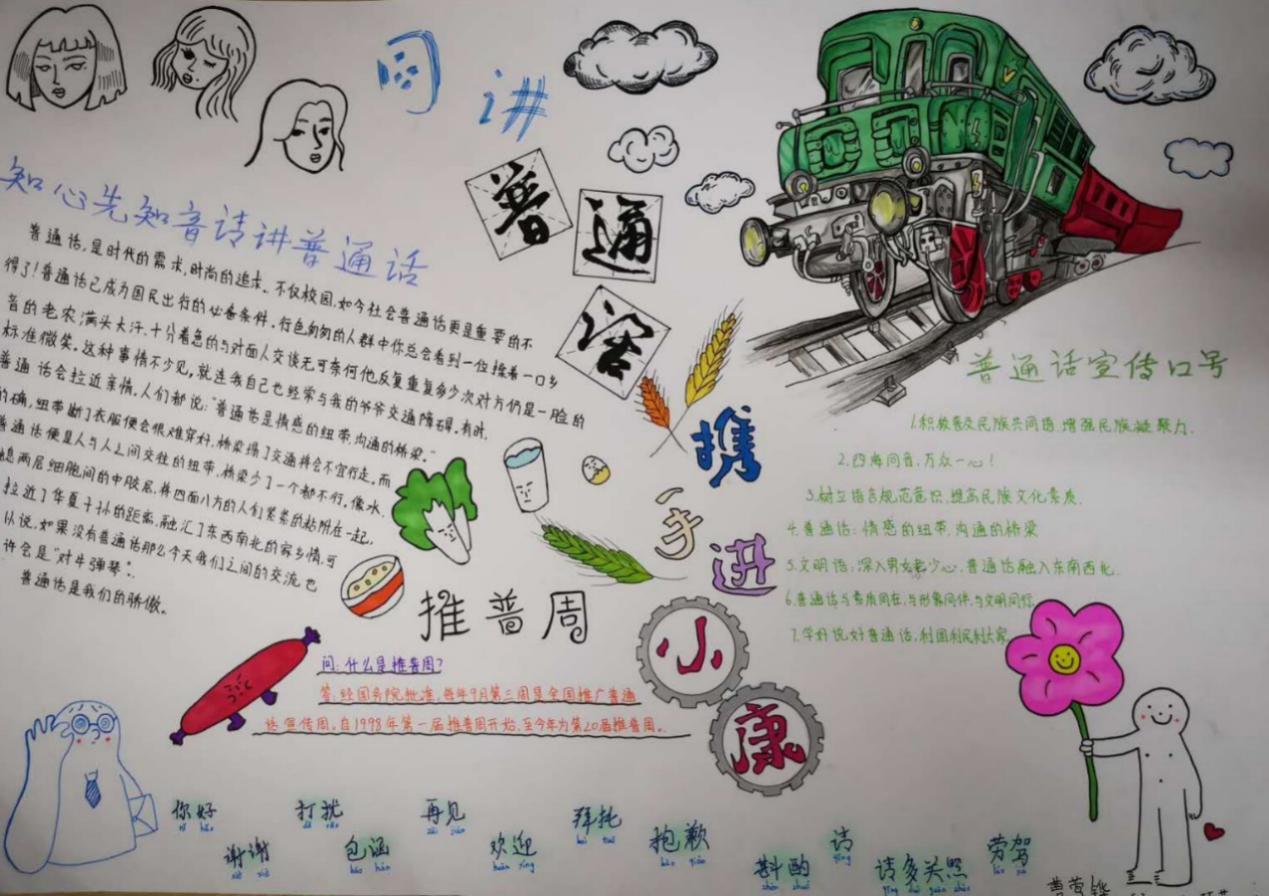 同讲
普通
话
携手进
小康
知心先知音请讲普通话
普通话，是时代的需求，时尚的追求。不仅校园，如今社会普通话更是重要的不
得了！普通话已成为国民出行的必备条件。行色匆匆的人群中你总会看到一位操着一口乡
音的老农，满头大汗，十分着急的与对面人交谈无可奈何他反复重复多少次对方仍是一脸的
标准微笑。这种事情不少见，就连我自己也经常与我的爷爷交通障碍。有时，
普通话会拉近亲情，人们都说："普通话是情感的纽带，沟通的桥梁。"
的确，纽带断了衣服便会很难穿好，桥梁塌了交通将会不宜行走。而
普通话便是人与人之间交往的纽带，桥梁少了一个都不行。像水
螅两层细胞间的中胶层，将四面八方的人们紧紧的粘附在一起，
拉近了华夏子孙的距离，融汇了东西南北的家乡情，可
以说，如果没有普通话那么今天我们之间的交流，也
许会是"对牛弹琴"。
普通话是我们的骄傲。
普通话宣传口号
1.积极普及民族共同语，增强民族凝聚力．
2.四海同音，万众一心！
3.树立语言规范意识，提高民族文化素质．
4.普通话：情感的纽带，沟通的桥梁
5.文明语：深入男女老少心，普通话融入东南西北．
6.普通话与素质同在，与形象同伴，与文明同行
7.学好说好普通话，利国利民利大家
推普周
问：什么是推普周？
答：经国务院批准，每年9月第三周是全国推广普通
话宣传周。自1998年第一届推普周开始，至今年为第20届推普周。
你好
谢谢
打扰
包涵
再见
欢迎
拜托
抱歉
斟酌
请
请多关照
劳驾